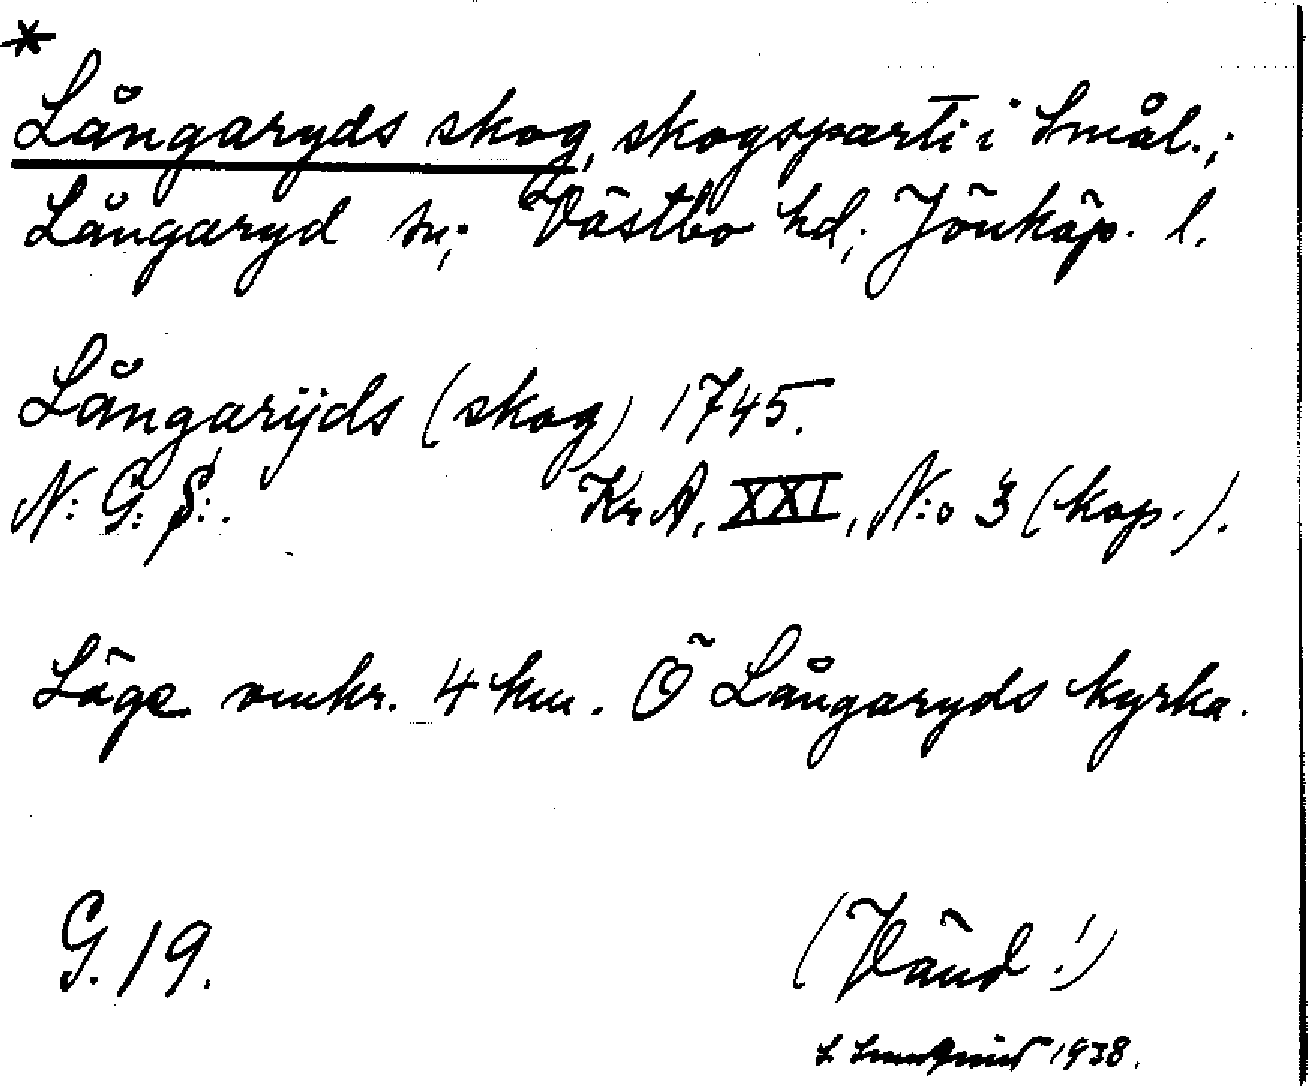 *
Långaryds skog, skogsparti i Smål.;
Långaryd sn; Västbo hd; Jönköp. l.
Långarÿds (skog) 1745.
N: G: S:. Kr.A, XXI, N:o 3 (kop.).
Läge omkr. 4 km. Ö Långaryds kyrka.
G. 19. (Vänd!)
1938.